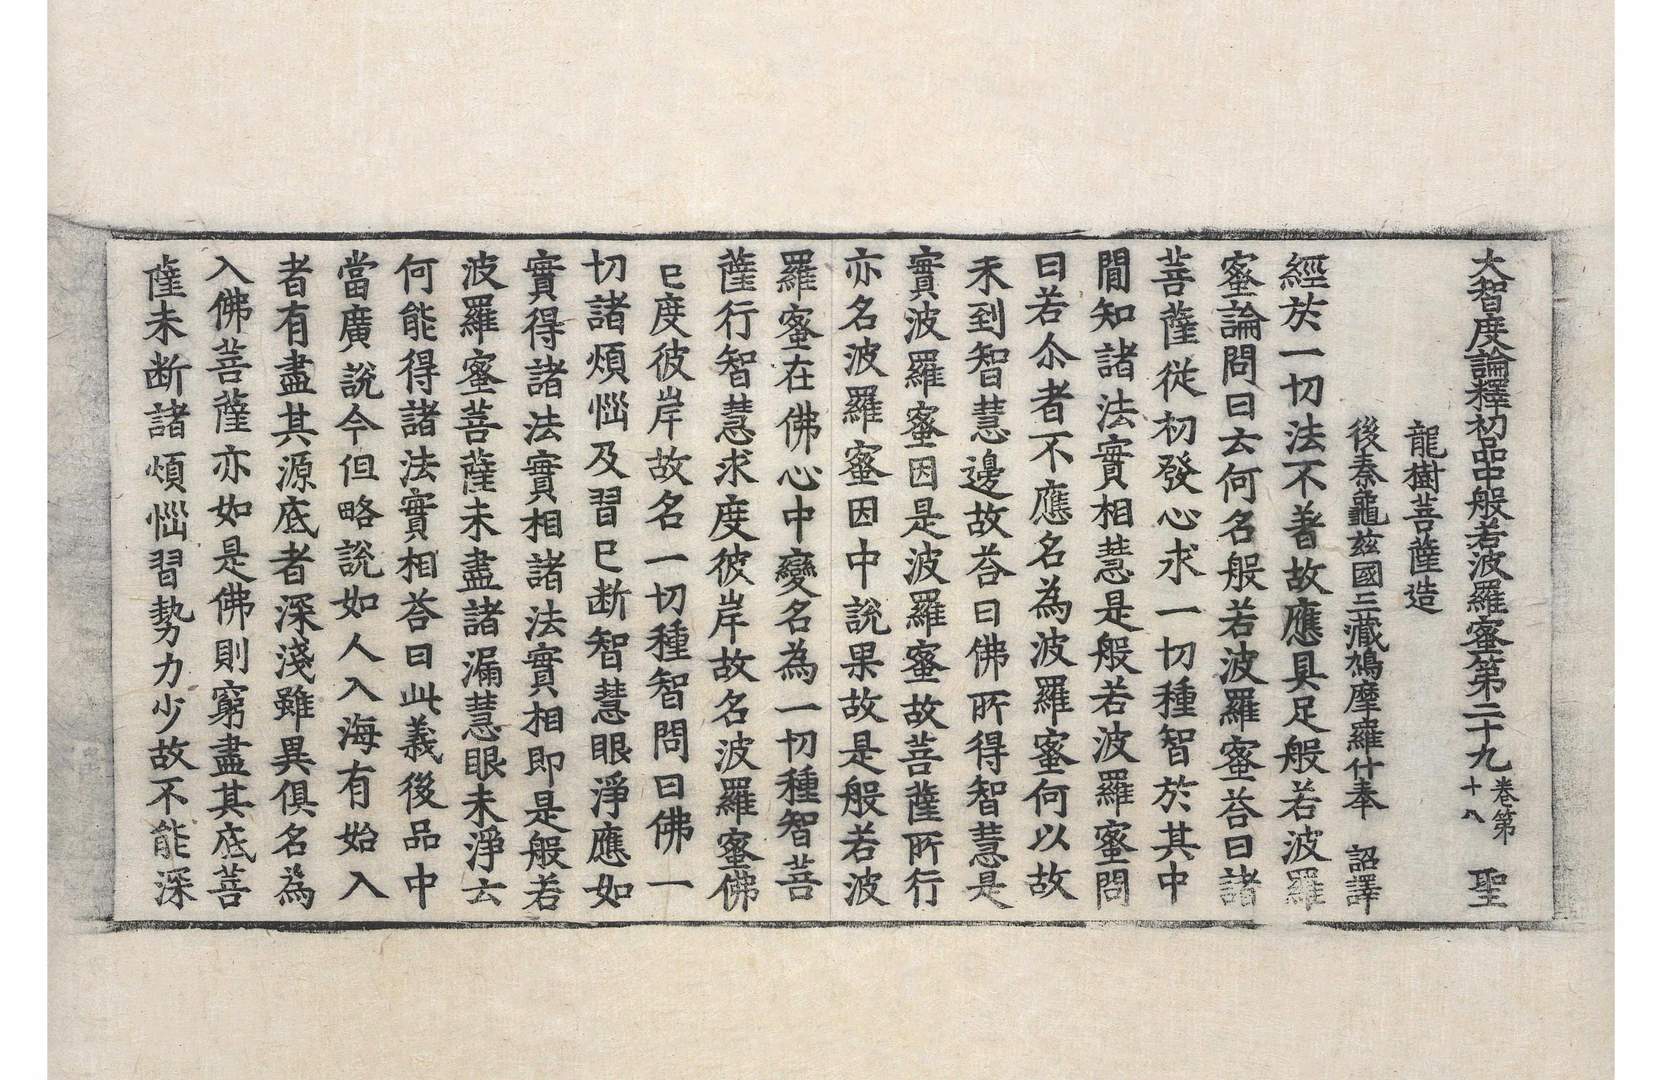 大智度論釋初品中般若波羅蜜第二十九 卷第十八 聖
龍樹菩薩造
後秦龜兹國三藏鳩摩羅什奉 詔譯
經於一切法不著故應具足般若波羅
蜜論問曰云何名般若波羅蜜荅曰諸
菩薩從初發心求一切種智於其中
間知諸法實相慧是般若波羅蜜問
曰若尒者不應名為波羅蜜何以故
未到智慧邊故荅曰佛所得智慧是
實波羅蜜因是波羅蜜故菩薩所行
亦名波羅蜜因中說果故是般若波
羅蜜在佛心中變名為一切種智菩
薩行智慧求度彼岸故名波羅蜜佛
已度彼岸故名一切種智問曰佛一
切諸煩惱及習已断智慧眼淨應如
實得諸法實相諸法實相即是般若
波羅蜜菩薩未盡諸漏慧眼未淨云
何能得諸法實相荅曰此義後品中
當廣說今但略說如人入海有始入
者有盡其源底者深淺雖異俱名為
入佛菩薩亦如是佛則窮盡其底菩
薩未断諸煩惱習勢力少故不能深